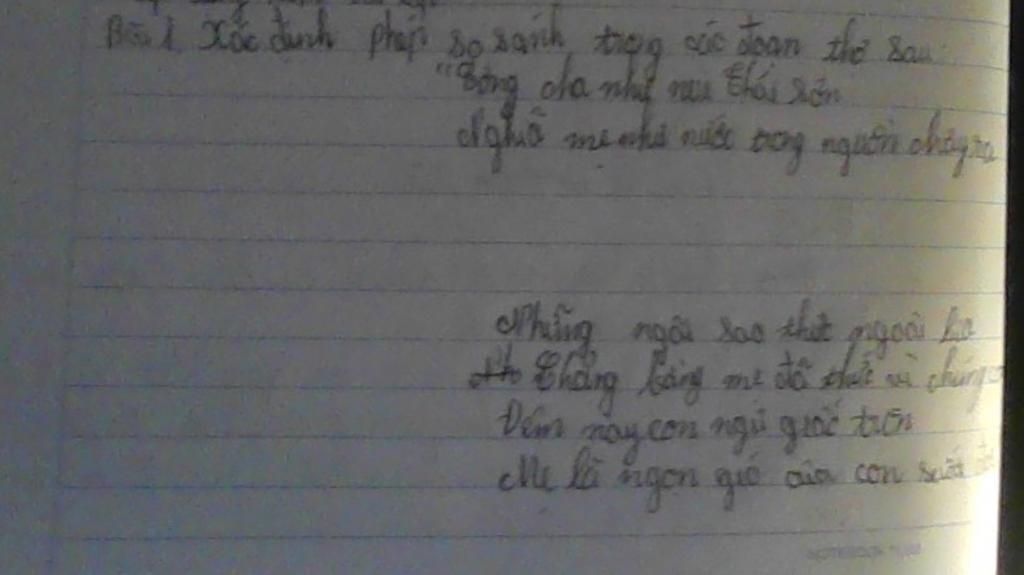 Bài 1 Xác định phép so sánh trong các đoạn thơ sau:
"Công cha như núi Thái Sơn
Nghĩa mẹ như nước trong nguồn chảy ra
Những ngôi sao thức ngoài kia
Chẳng bằng mẹ đã thức vì chúng
Đêm nay con ngủ giấc tròn
Mẹ là ngọn gió của con suốt